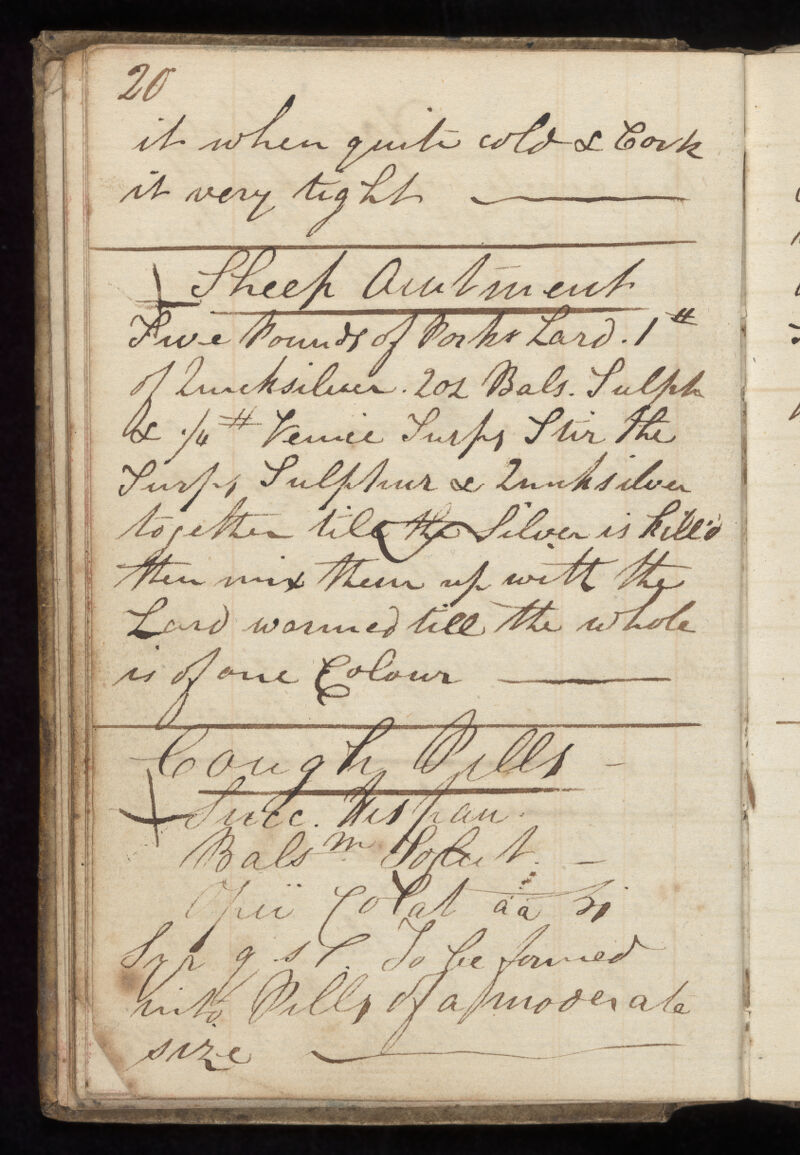 20
it when quite cold & Cork
it very tight
Sheep Ointment
Five Pounds of Porks Lard. 1 ℔
of Quicksilver. 2oz Bals. Sulph
& 1/4 ℔ Venice Turps, Stir the
Turps, Sulphur & Quicksilver
together till the Silver is kill'd
then mix them up with the
Lard warmed till the whole
is of one Colour
Cough Pills
Succ. Hispan.
Bals.m Tolut.
Opii Colat aa ʒi
Syr q. s. To be formed
into Pills of a moderate
size